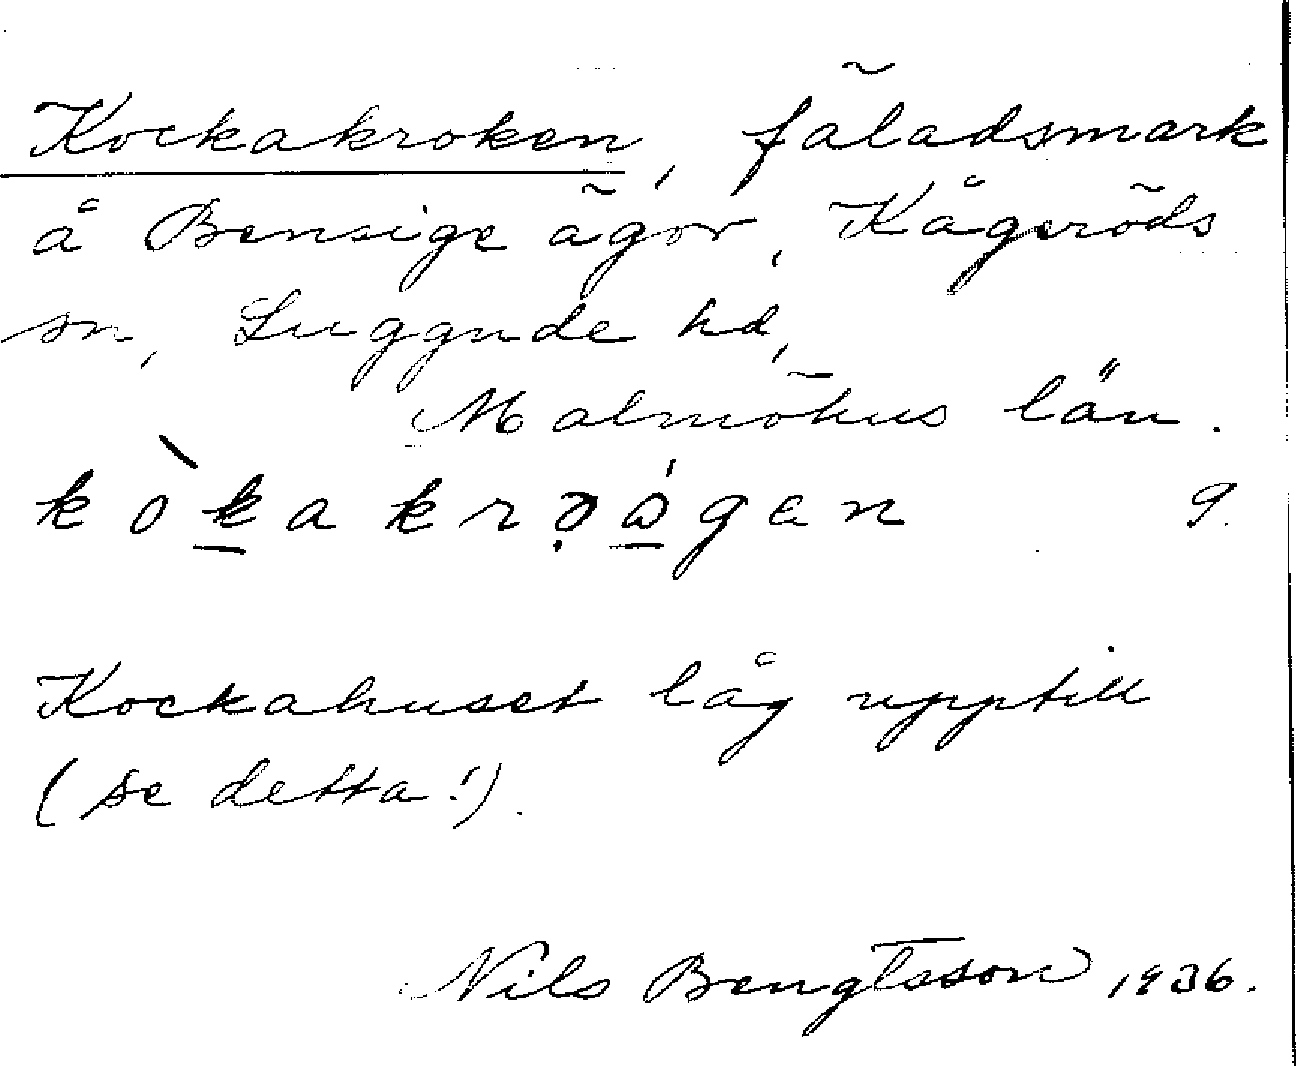 Kockakroken, fäladsmark
å Bensige ägor, Kågeröds
sn, Luggude hd,
Malmöhus län.
kòkakrǫǻgen 9.
Kockahuset låg upptill
(se detta!).
Nils Bengtsson 1936.